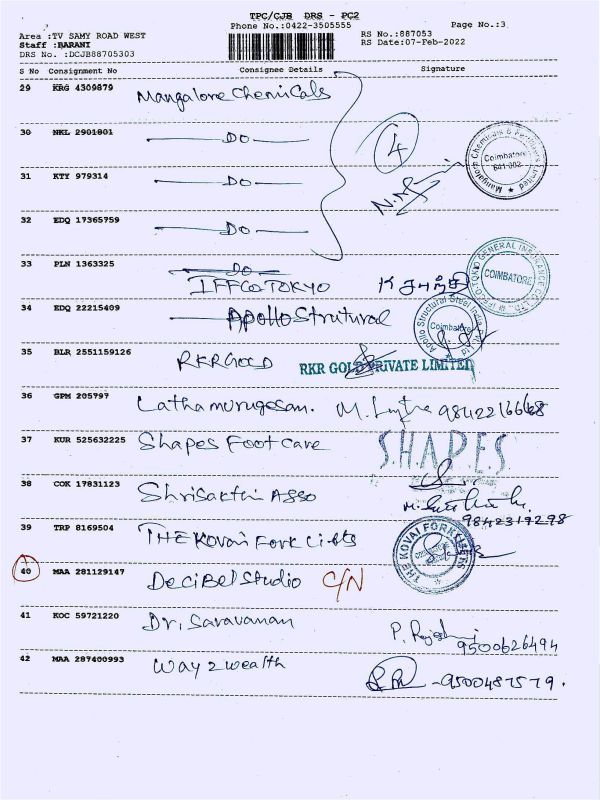 TPC/CJB DRS - PC2
Phone No.:0422-3505555
Page No.:3
Area :TV SAMY ROAD WEST
Staff :BARANI
DRS No. :DCJB88705303
RS No.:887053
RS Date:07-Feb-2022
S No Consignment No Consignee Details Signature
29 KRG 4309879 Mangalore Chemicals
30 NKL 2901801 DO
4
31 KTY 979314 DO
Mangalore Chemicals & Fertilizers Limited Coimbatore 641 002
32 EDQ 17365759 DO
33 PLN 1363325 DO
IFFCO TOKYO
IFFCO-TOKIO GENERAL INSURANCE CO. LTD. COIMBATORE
34 EDQ 22215409 Apollo Strutural
Apollo Structural Steel India Pvt Coimbatore
35 BLR 2551159126 RKR GOLD RKR GOLD PRIVATE LIMITED
36 GPM 205797 Latha murugesan. 9842216668
37 KUR 525632225 Shapes Foot Care S.H.A.P.E.S
38 COK 17831123 Shrisakthi Asso
9842319298
39 TRP 8169504 THE Kovai Fork Lifts THE KOVAI FORK LIFTS
40 MAA 281129147 Decibel Studio C/N
41 KOC 59721220 Dr. Saravanan 9500626494
42 MAA 287400993 Way 2 wealth -9500487579.